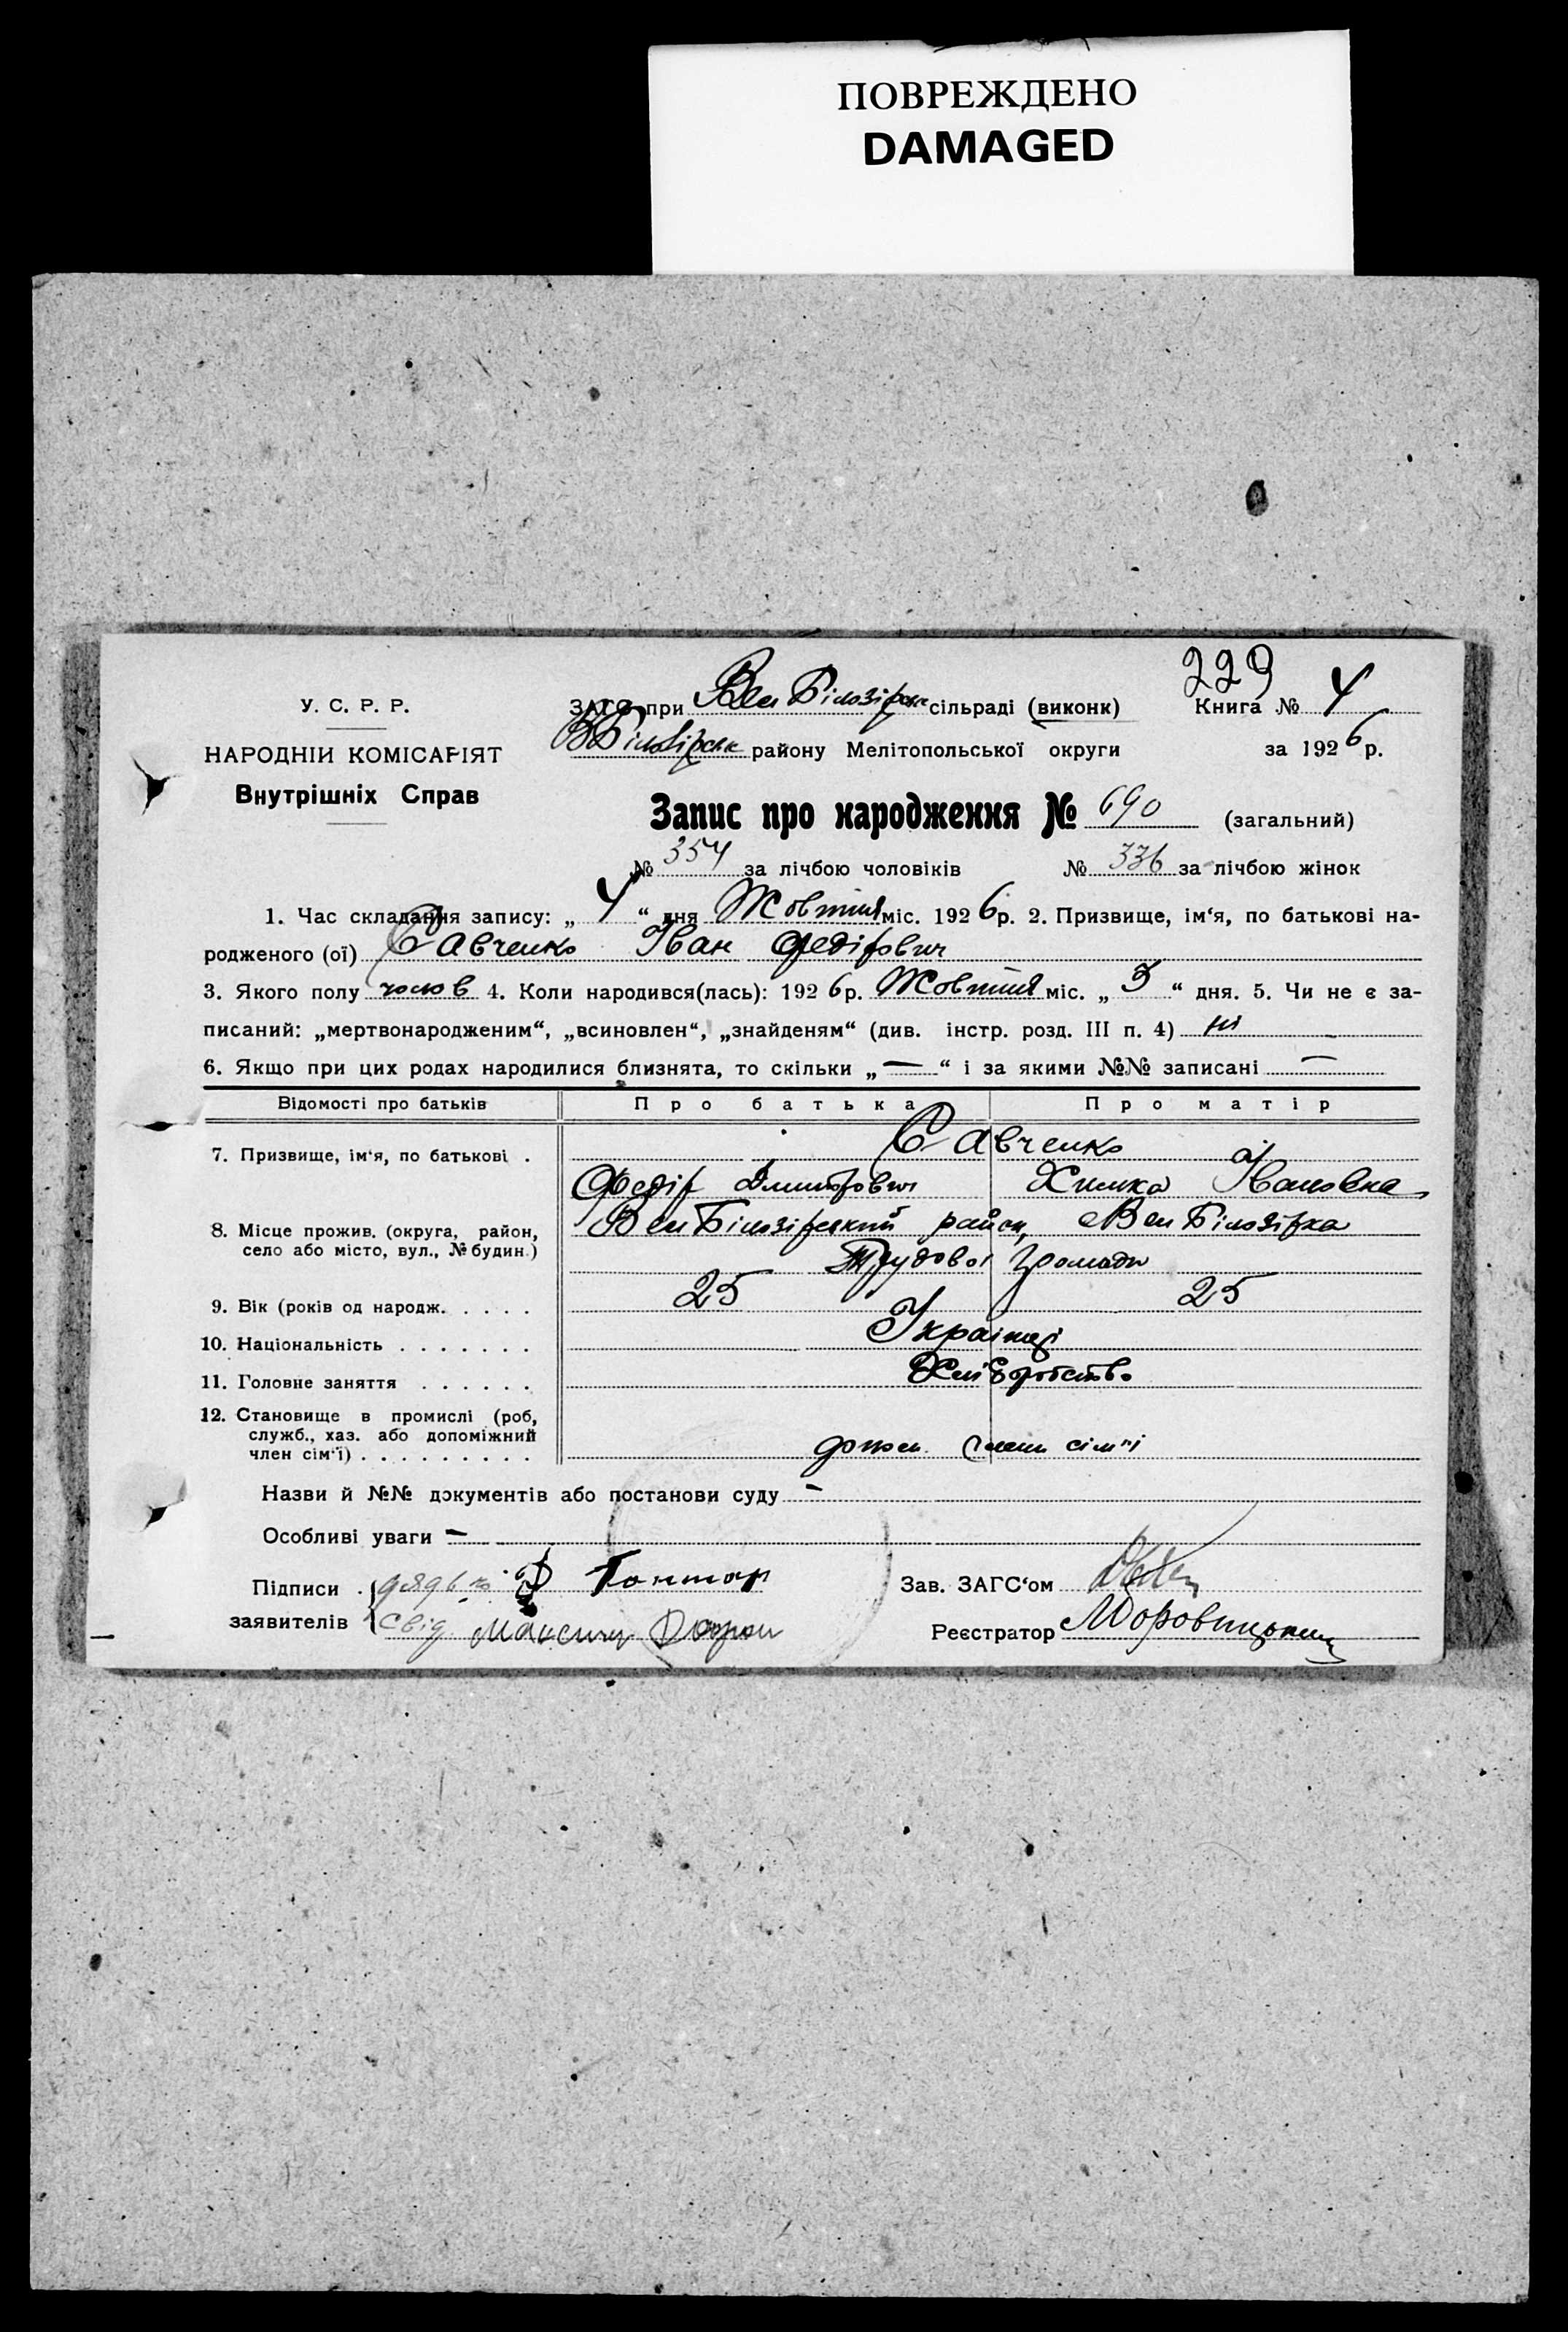 ПОВРЕЖДЕНО
DAMAGED
229
У. С. Р. Р.
НАРОДНІЙ КОМІСАРІЯТ
Внутрішніх Справ
ЗАГС при Вел Білозірск сільраді (виконк) Книга № 4
ВБілозірск району Мелітопольської округи за 1926 р.
Запис про народження № 690 (загальний)
№ 354 за лічбою чоловіків № 336 за лічбою жінок
1. Час складання запису: „ 4 “ дня Жовтня міс. 1926 р. 2. Призвище, ім‘я, по батькові на-
родженого (ої) Савченко Іван Федірович
3. Якого полу чолов 4. Коли народився(лась): 1926 р. Жовтня міс. „ 3 “ дня. 5. Чи не є за-
писаний: „мертвонародженим“, „всиновлен“, „знайденям“ (див. інстр. розд. III п. 4) ні
6. Якщо при цих родах народилися близнята, то скільки „ — “ і за якими №№ записані —
Відомості про батьків Про батька Про матір
7. Призвище, ім‘я, по батькові . Савченко
Федір Дмитрович Химка Івановна
8. Місце прожив. (округа, район, Вел Білозірский район, Вел Білозірка
село або місто, вул., № будин.) Трудової громади
9. Вік (років од народж. . . . . 25 25
10. Національність . . . . . . . Українці
11. Головне заняття . . . . . . Хліборобство
12. Становище в промислі (роб,
служб., хаз. або допоміжний
член сім‘ї) . . . . . . . . . член сім"і
Назви й №№ документів або постанови суду —
Особливі уваги —
Підписи Гонтар Зав. ЗАГС‘ом
заявителів свід. Реєстратор